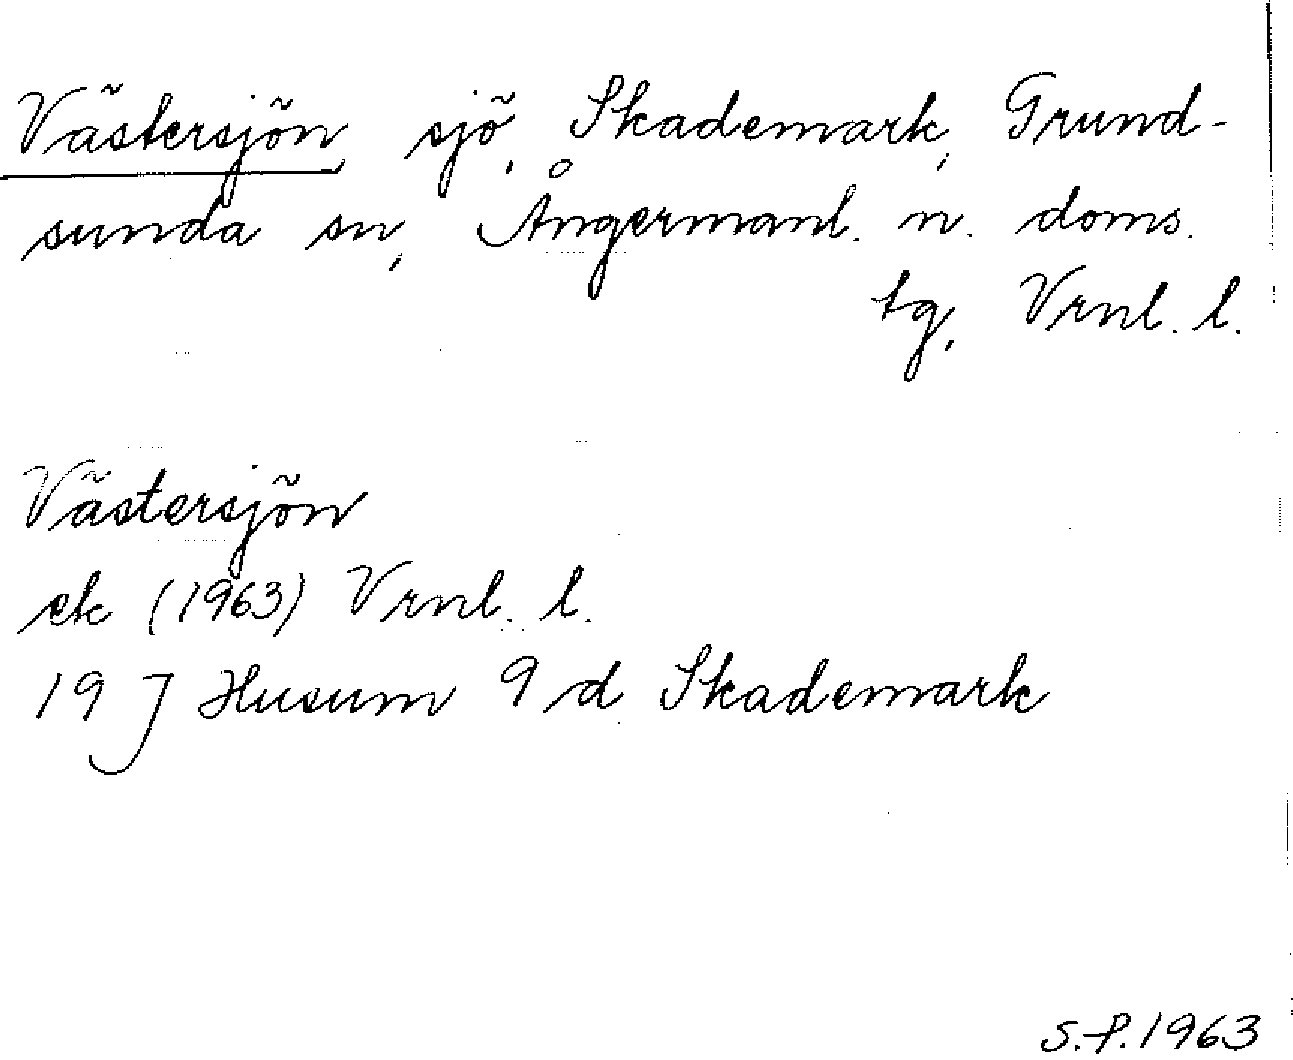 Västersjön, sjö, Skademark, Grund-
sunda sn, Ångermanl. n. doms.
tg, Vrnl. l.
Västersjön
ek (1963) Vrnl. l.
19 J Husum 9 d Skademark
S.P. 1963